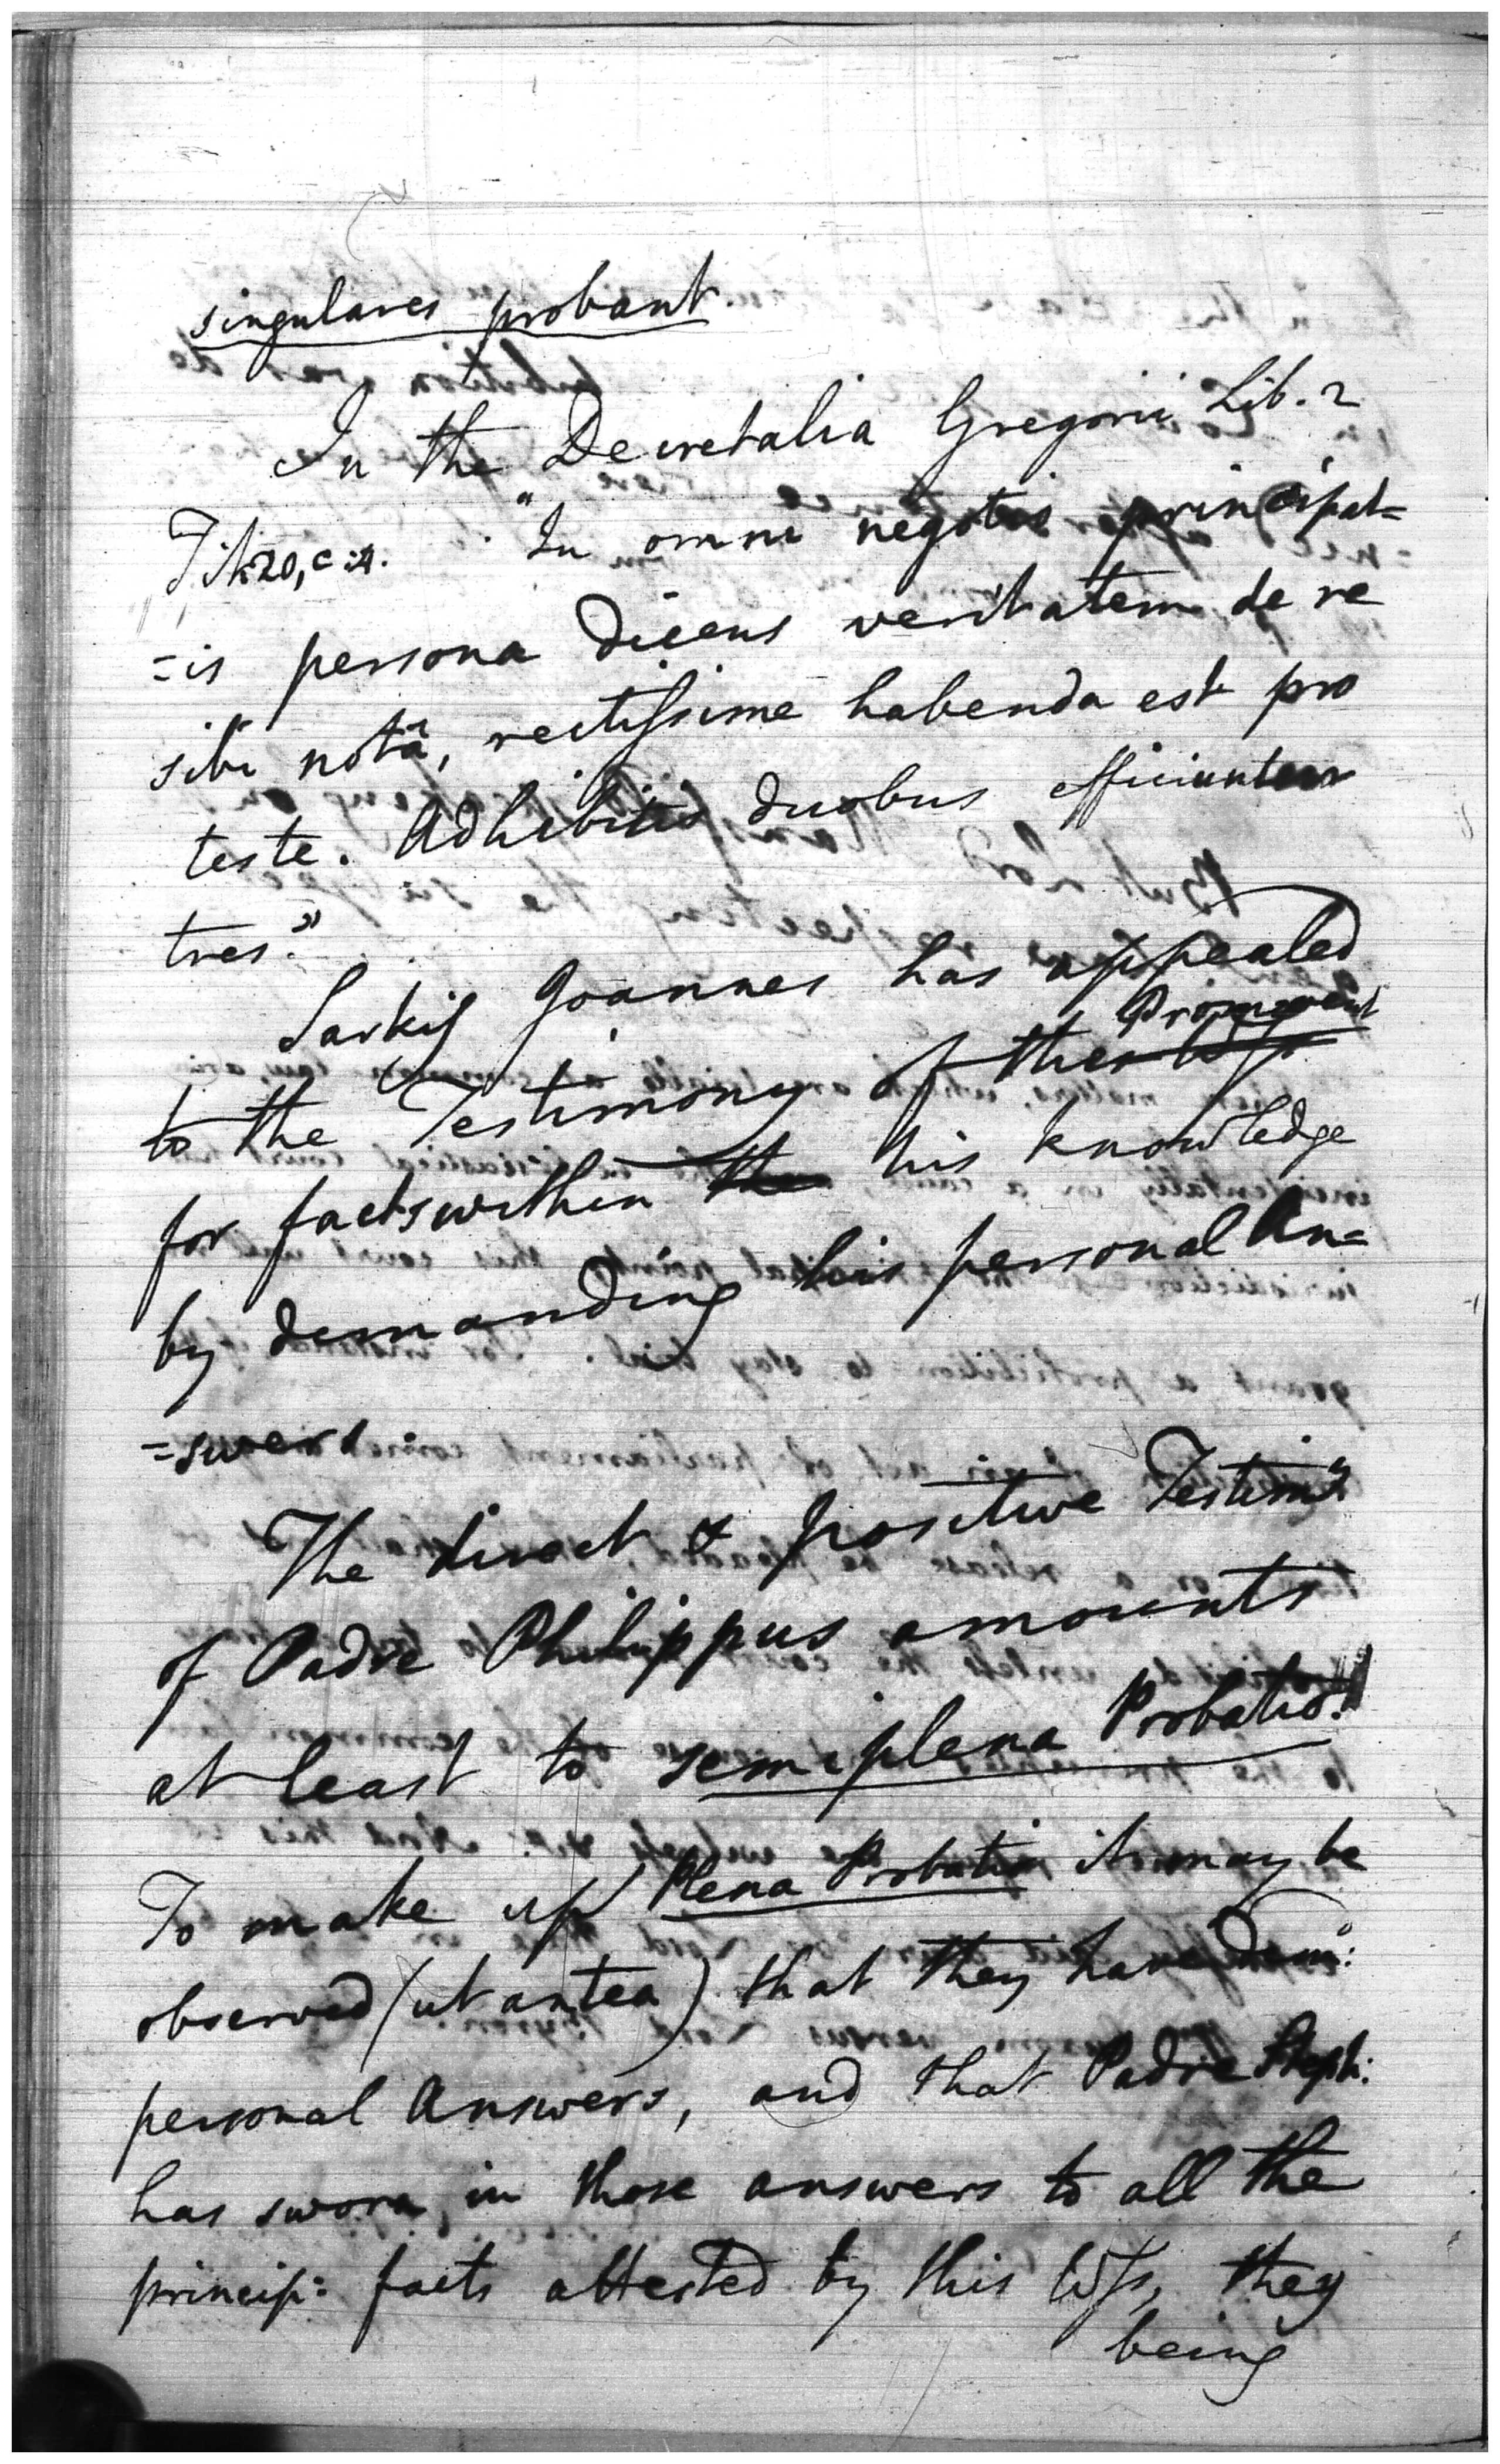 singulares probant.
In the Decretalia Gregorii Lib. 2
Tit. 20, c. 4. "In omni negotio principal=
=is persona dicens veritatem de re
sibi notâ, rectissime habenda est pro
teste. Adhibitis duobus efficiuntur
tres."
Sarkis Joannes has appealed
Promovent
to the Testimony of the
for facts within the his knowledge
by demanding his personal An=
=swers.
The direct & positive Testim:y
of Padre Philippus amounts
at least to semiplena Probatio.
To make up Plena Probatio it may be
observed (ut antea) that they have dem:
personal Answers, and that Padre Steph:
has sworn in those answers to all the
princip: facts attested by this Wss, they
being